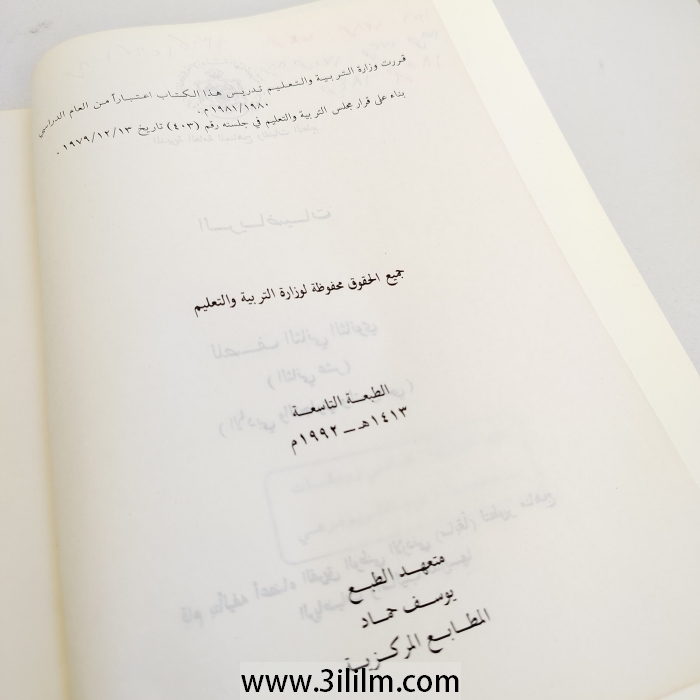 قررت وزارة التربية والتعليم تدريس هذا الكتاب اعتباراً من العام الدراسي
١٩٨١/١٩٨٠م .
بناء على قرار مجلس التربية والتعليم في جلسته رقم (٤٠٣) تاريخ ١٩٧٩/١٢/١٣ .
الريـاضيـات
جميع الحقوق محفوظة لوزارة التربية والتعليم
للصـف الثاني الثانوي
الطبعـة التاسعـة
١٤١٣هـ ــ ١٩٩٢م
متعهـد الطبـع
يوسـف حمـاد
المطابـع المركـزيـة
www.3ililm.com